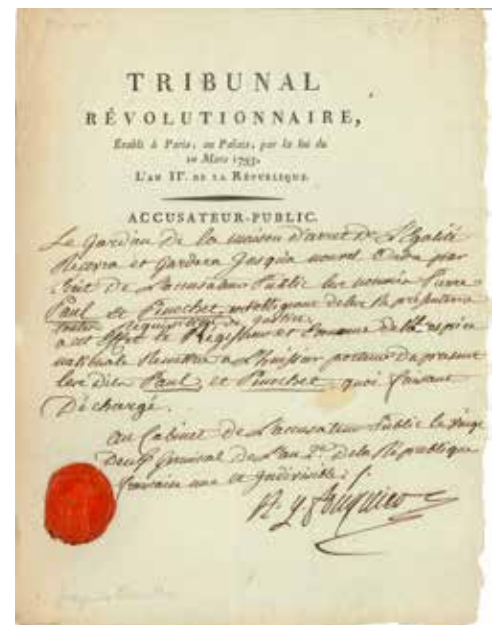 TRIBUNAL
RÉVOLUTIONNAIRE,
Établi à Paris, au Palais, par la loi du
10 Mars 1793,
L'AN IIe. DE LA RÉPUBLIQUE.
ACCUSATEUR-PUBLIC.
Le gardien de la maison d'arret de L'Egalité
Recevra et gardera jusqua nouvel ordre par
de L'accusateur Public les nommés
Paul et Pinochet, de les Representer
toutes Requisitions de Justice
a cet effet le Registre et
nationale Remettre a L'huissier porteur du present
les dits Paul, et Pinochet, quoi faisant
Déchargé.
au Cabinet de L'accusateur Public le vingt
Deux Germinal de L'an 2e. de la Republique
francaise une et Indivisible.
A. Q. Fouquier